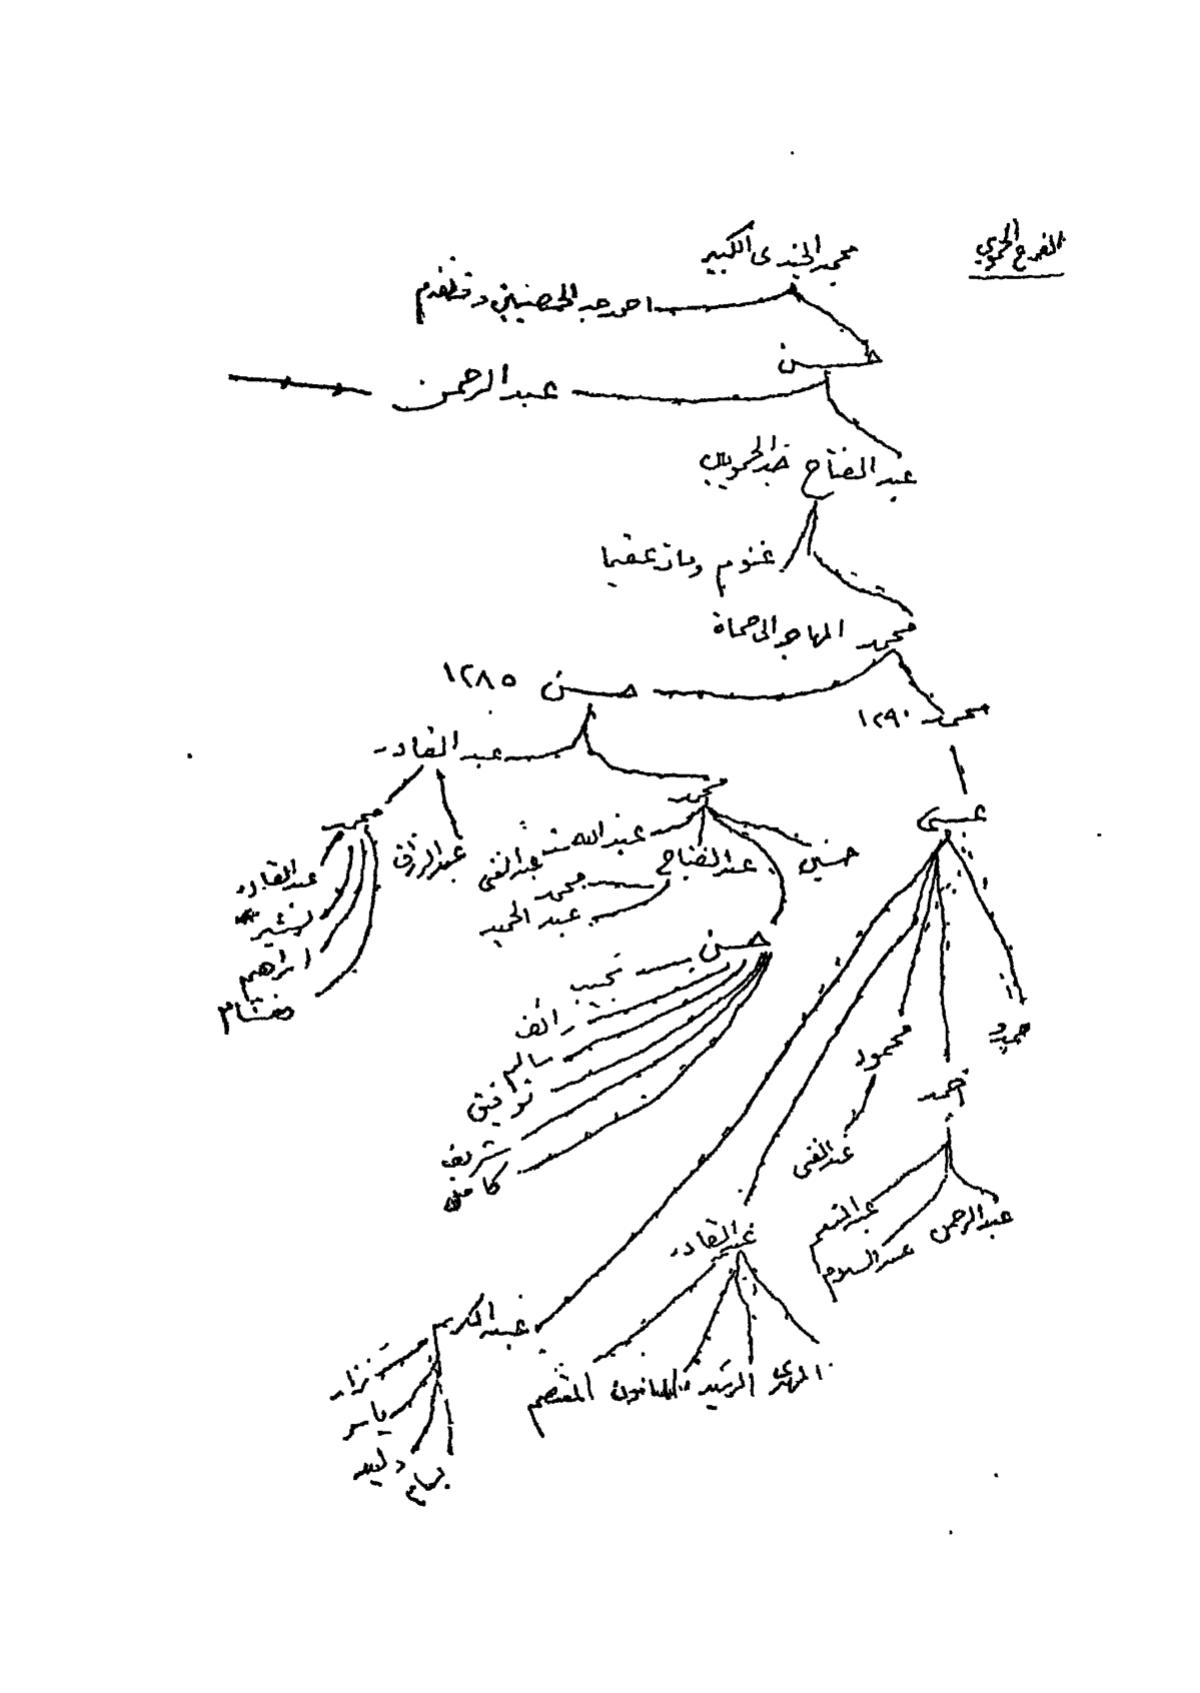 الفرع الحموي
محمد الجندي الكبير
احمد جد الحمصيين وقد تقدم
حسن
عبد الرحمن
عبد الفتاح جد الحمويين
غنوم ومات عقيما
محمد المهاجر الى حماة
حسن ١٢٨٥
محمد ١٢٩٠
عبد القادر
محمد
عيسى
محمد
عبد الرزاق
عبد الله
عبد الغني
عبد الفتاح
حسني
عبد القادر
بشير
ابراهيم
هشام
محمد
عبد الحميد
حسن
نجيب
رائف
سالم
توفيق
شريف
كامل
محمود
احمد
عبد الغني
عبد المنعم
عبد السلام
عبد الرحمن
عبد القادر
عبد الكريم
المهدي
الرشيد
المأمون
المعتصم
نزار
ياسر
وليد